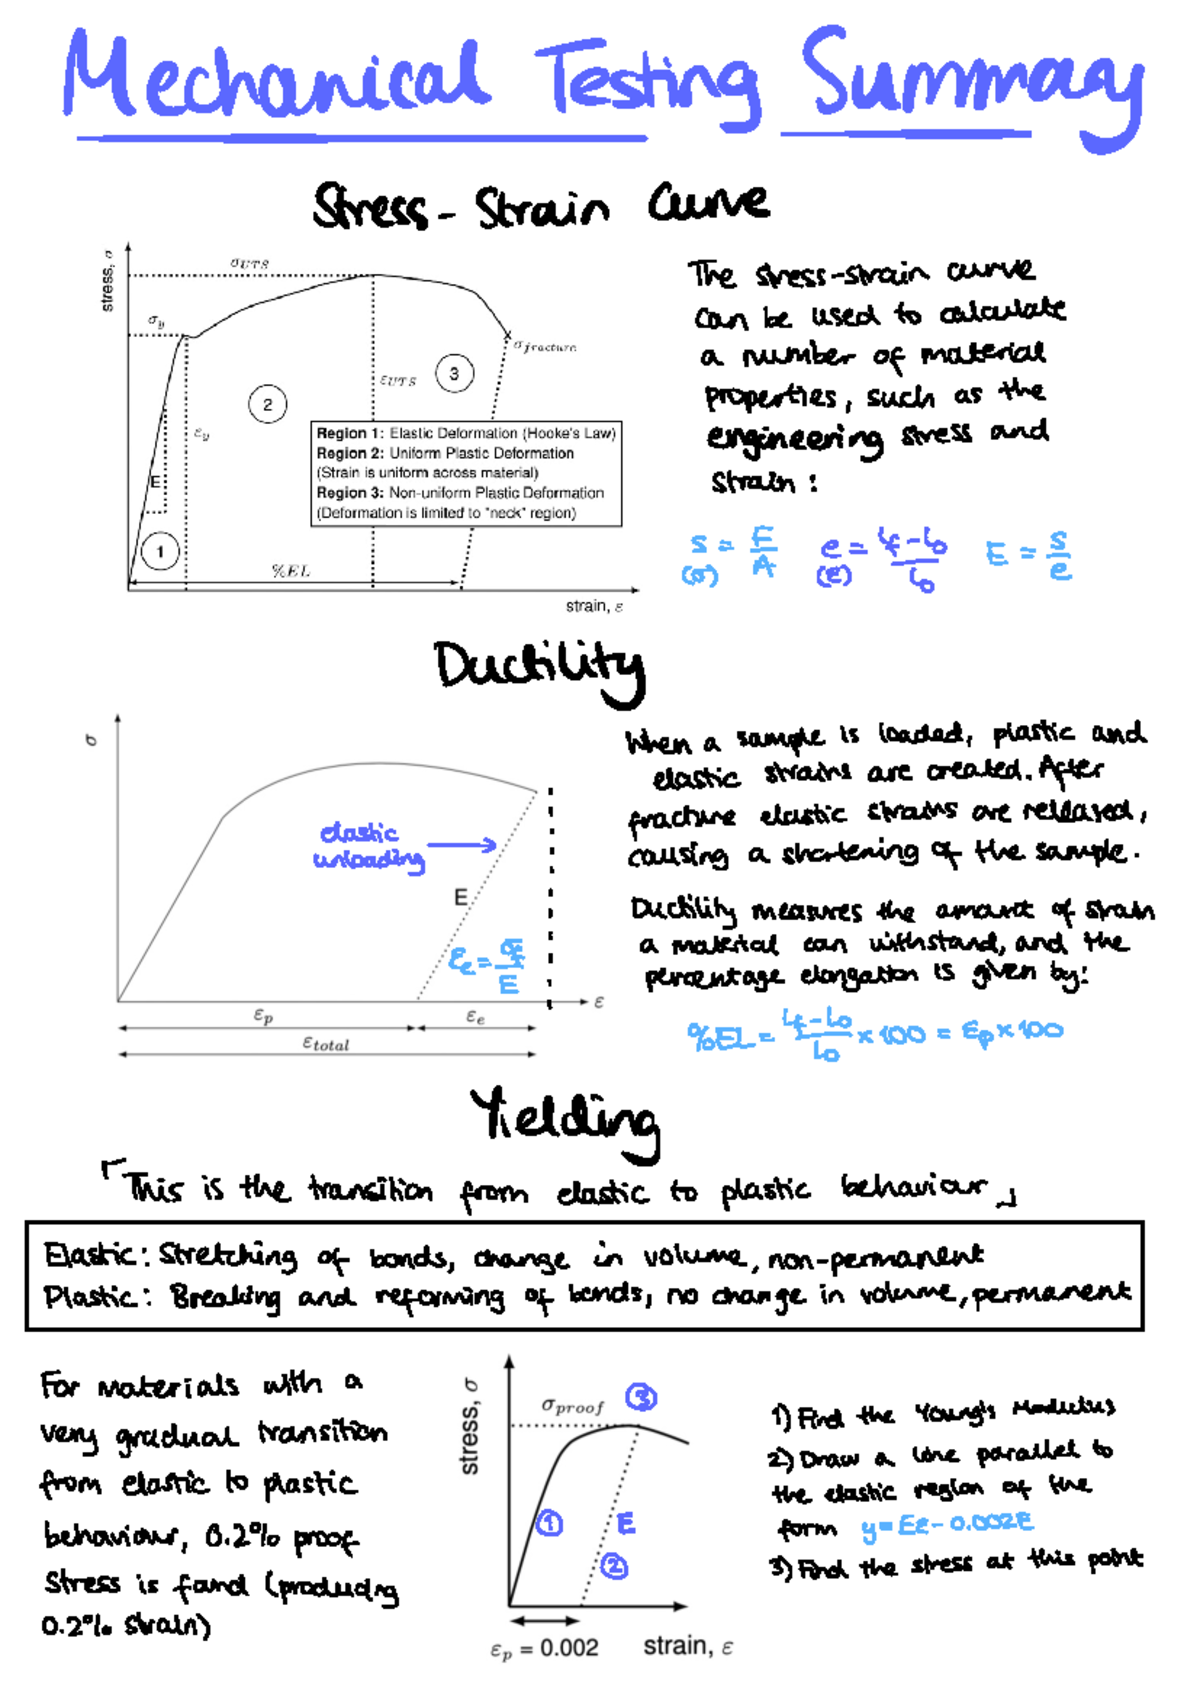 Mechanical Testing Summary
Stress-Strain Curve
stress, σ
σUTS
σy
σfracture
εUTS
3
2
εy
Region 1: Elastic Deformation (Hooke's Law)
Region 2: Uniform Plastic Deformation
(Strain is uniform across material)
Region 3: Non-uniform Plastic Deformation
(Deformation is limited to "neck" region)
E
1
%EL
strain, ε
The stress-strain curve
can be used to calculate
a number of material
properties, such as the
engineering stress and
strain:
s = F/A e = Lf-L0/L0 E = s/e
(σ) (ε)
Ductility
σ
elastic
unloading
E
εe = σf/E
ε
εp εe
εtotal
When a sample is loaded, plastic and
elastic strains are created. After
fracture elastic strains are released,
causing a shortening of the sample.
Ductility measures the amount of strain
a material can withstand, and the
percentage elongation is given by:
%EL = Lf-L0/L0 x 100 = εp x 100
Yielding
「This is the transition from elastic to plastic behaviour」
Elastic: Stretching of bonds, change in volume, non-permanent
Plastic: Breaking and reforming of bonds, no change in volume, permanent
For materials with a
very gradual transition
from elastic to plastic
behaviour, 0.2% proof
stress is found (producing
0.2% strain)
stress, σ
σproof
3
1
E
2
εp = 0.002 strain, ε
1) Find the Young's Modulus
2) Draw a line parallel to
the elastic region of the
form y = Eε - 0.002E
3) Find the stress at this point